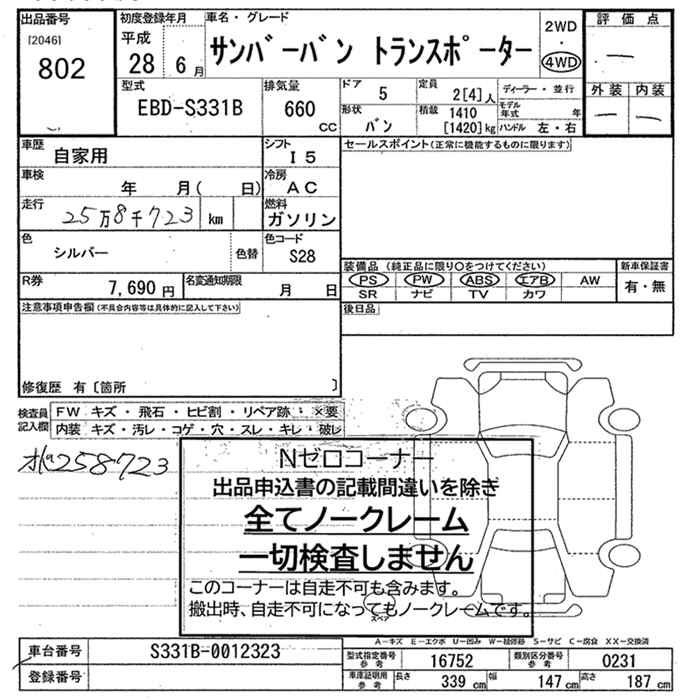 出品番号 初度登録年月 車名・グレード 2WD 評価点
[2046] 平成 ・ —
802 28 6月 サンバーバン トランスポーター 4WD 外装 内装
型式 排気量 ドア 5 定員 2[4]人 ディーラー・並行 — —
EBD-S331B 660 cc 形状 バン 積載 1410 [1420]kg モデル年式 年
ハンドル 左・右
車歴 自家用 シフト I5 セールスポイント(正常に機能するものに限ります)
車検 年 月( 日) 冷房 AC
走行 25万8千723 km 燃料 ガソリン
色 シルバー 色替 色コード S28
装備品 (純正品に限り○をつけてください) 新車保証書
R券 7,690円 名変通知期限 月 日 PS PW ABS エアB AW 有・無
SR ナビ TV カワ
注意事項申告欄(不具合内容等は具体的に記入して下さい) 後日品
修復歴 有〔箇所 〕
検査員記入欄 FW キズ・飛石・ヒビ割・リペア跡・×要
内装 キズ・汚レ・コゲ・穴・スレ・キレ・破レ
258723
Nゼロコーナー
出品申込書の記載間違いを除き
全てノークレーム
一切検査しません
このコーナーは自走不可も含みます。
搬出時、自走不可になってもノークレームです。
スペア
A-キズ E-エクボ U-凹み W-補修跡 S-サビ C-腐食 XX-交換済
車台番号 S331B-0012323 型式指定番号 参考 16752 類別区分番号 参考 0231
登録番号 車庫証明用 参考 長さ 339 cm 幅 147 cm 高さ 187 cm